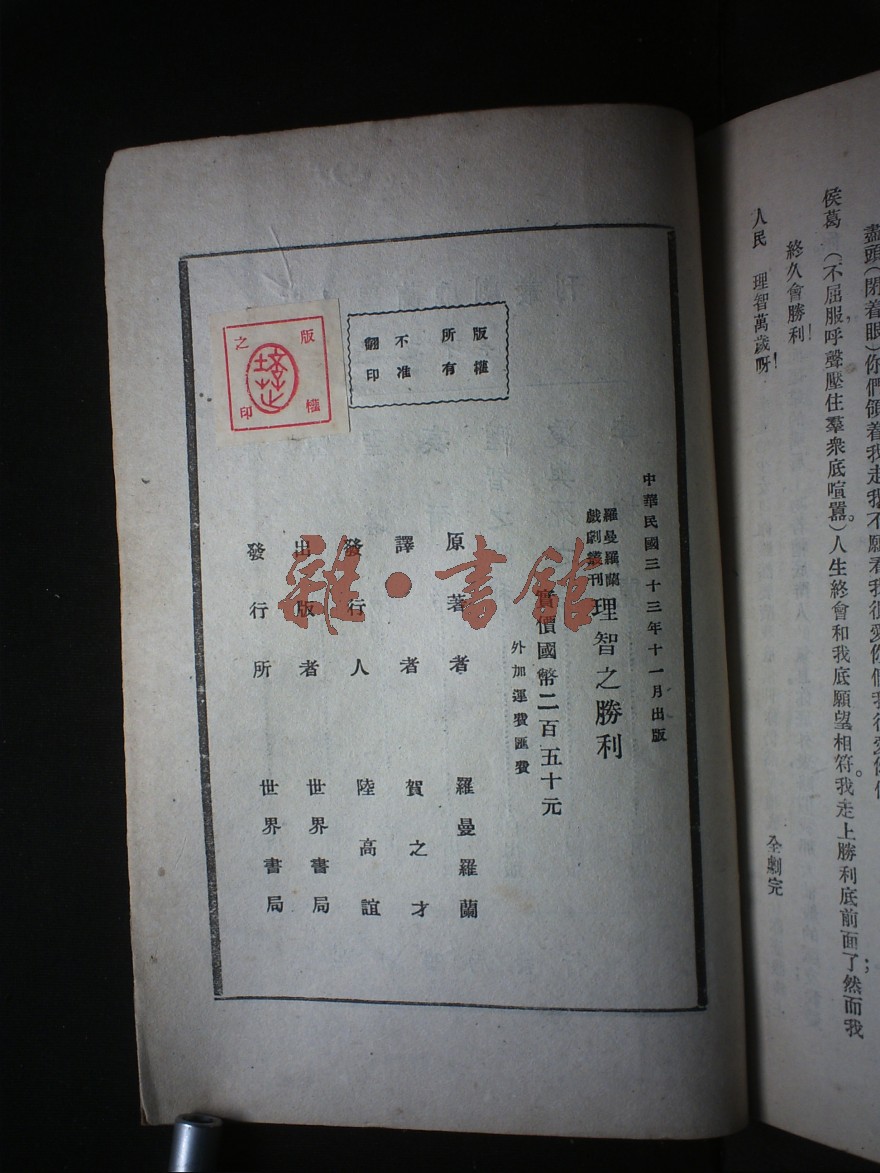 盡頭(閉着眼)你們領着我走我不願看我很愛你們我很愛你們
侯葛 (不屈服,呼聲壓住羣衆底喧囂。)人生終會和我底願望相符。我走上勝利底前面了然而我;
終久會勝利!
人民 理智萬歲呀!
全劇完
中華民國三十三年十一月出版
羅曼羅蘭
戲劇叢刊
理智之勝利
實價國幣二百五十元
外加運費匯費
原著者 羅曼羅蘭
譯者 賀之才
發行人 陸高誼
出版者 世界書局
發行所 世界書局
版權
所有
不准
翻印
版權
之印
雜·書館